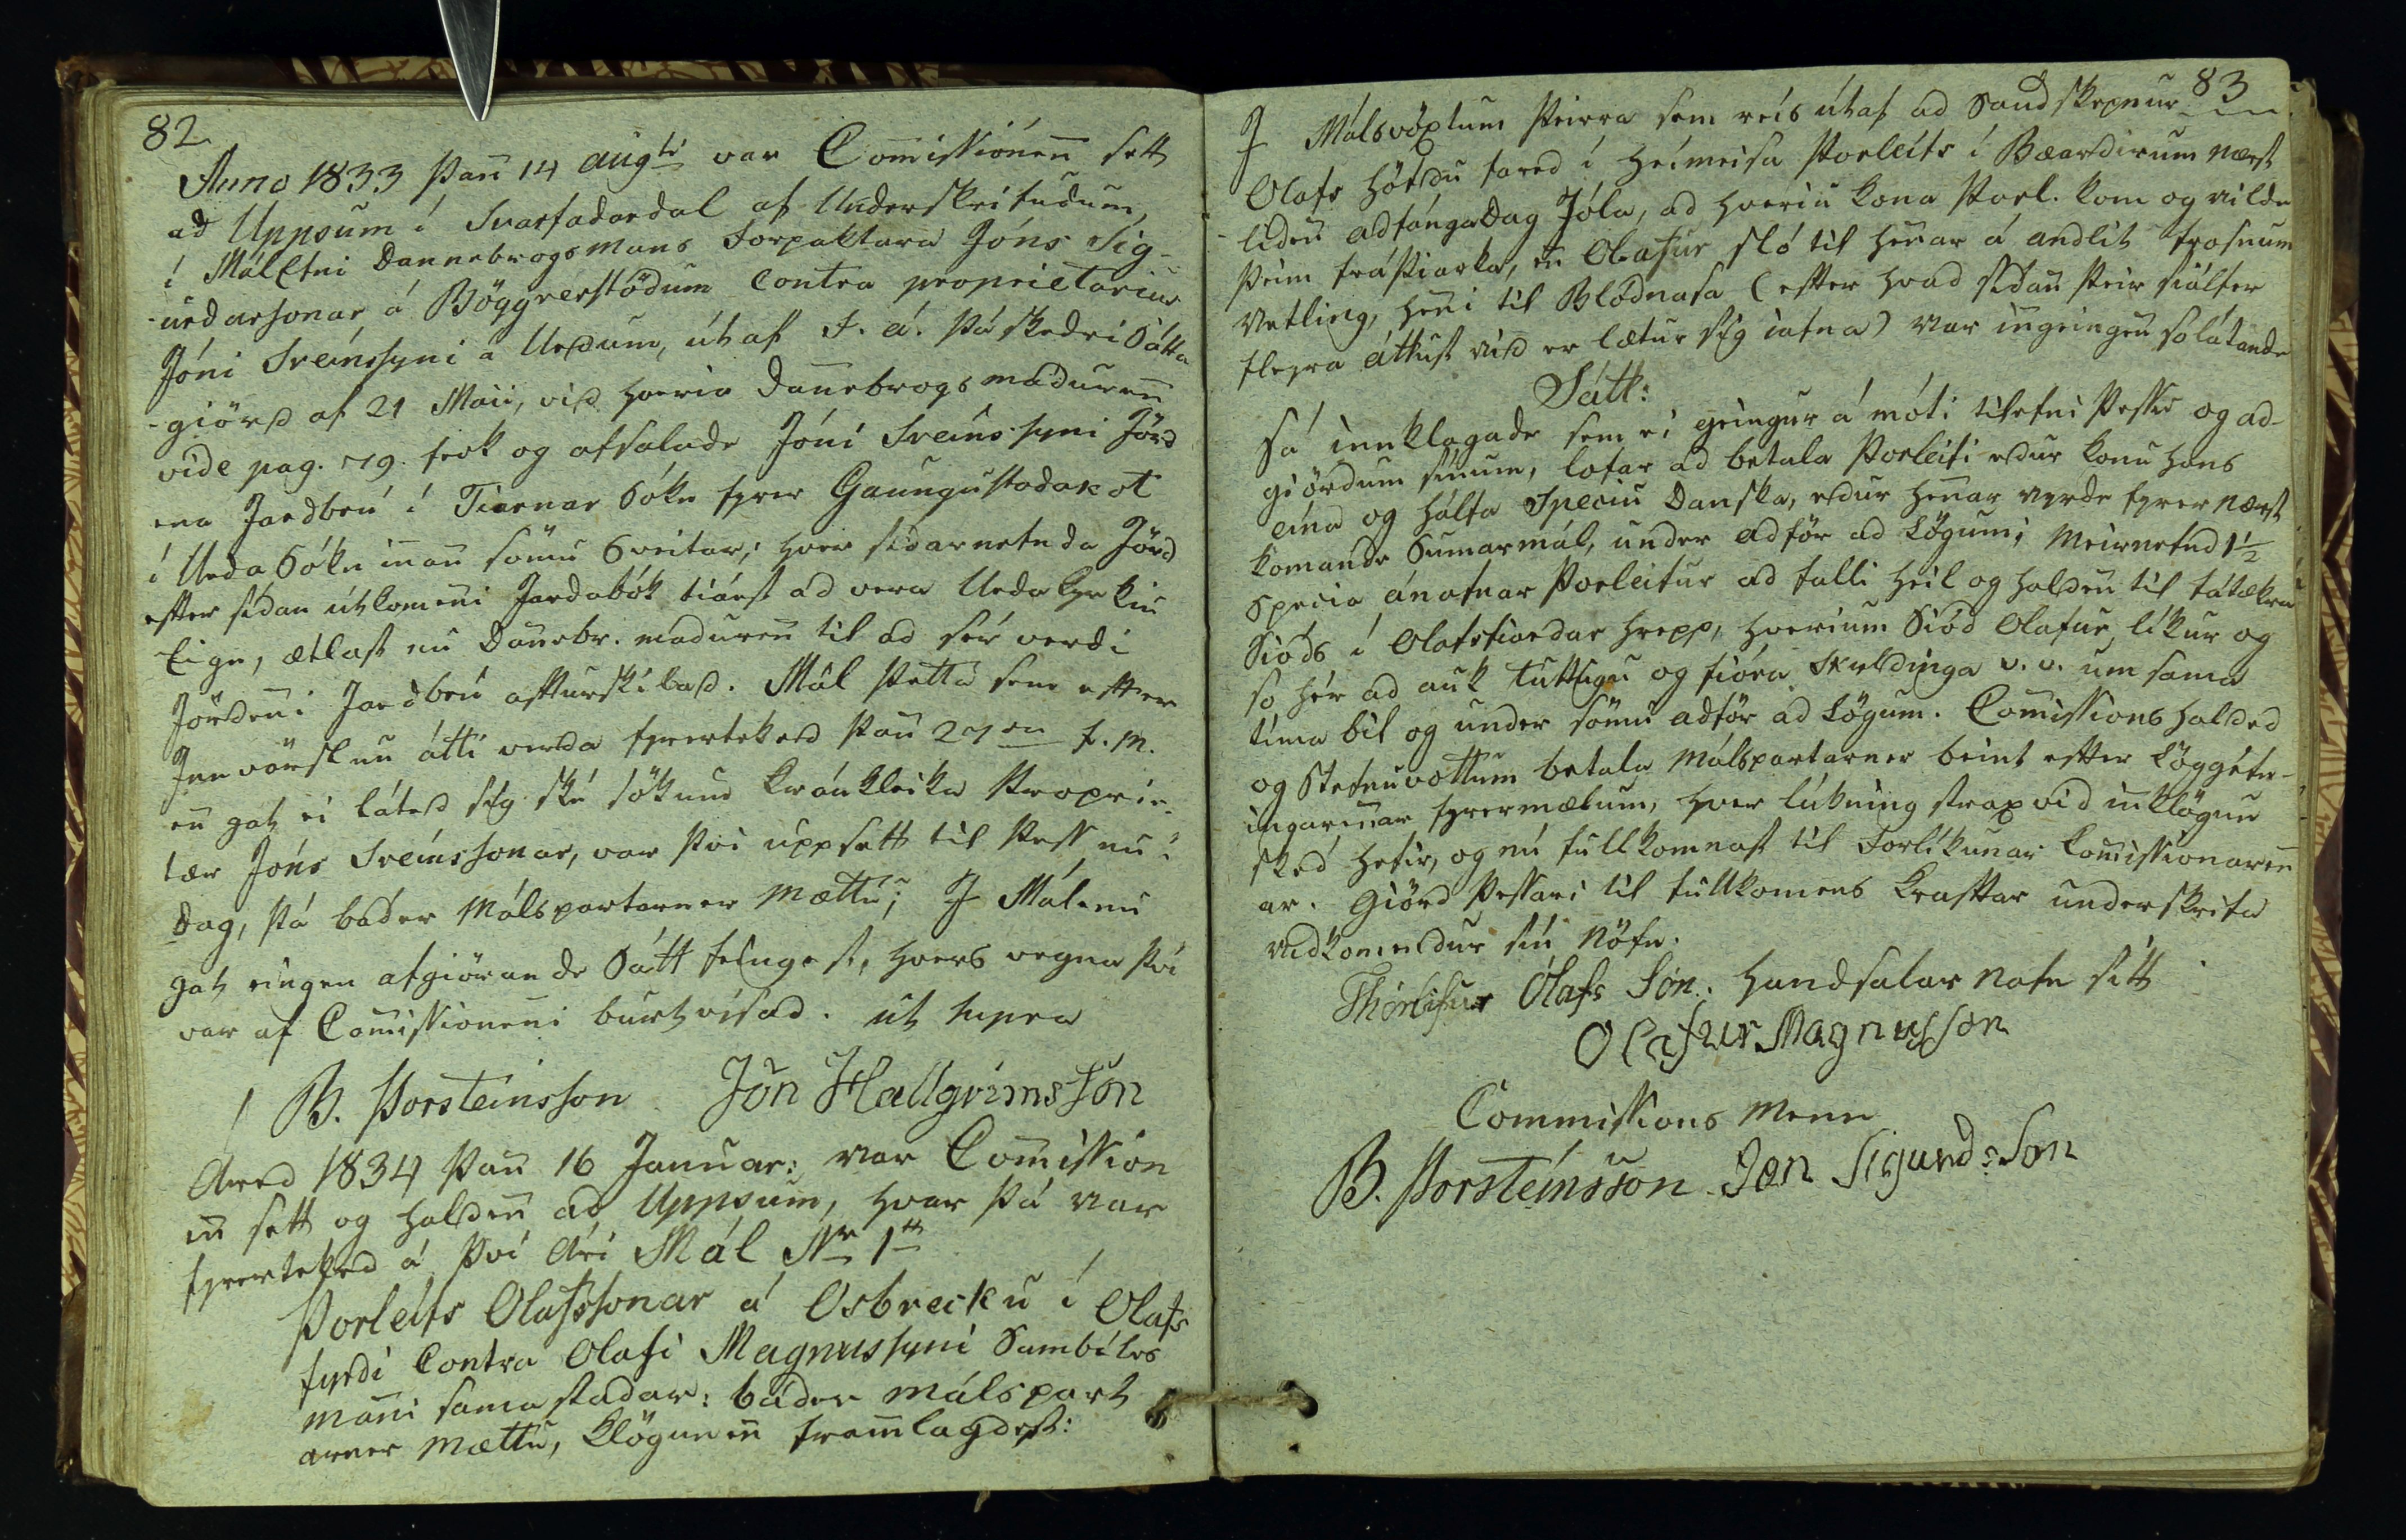 82
Anno 1833 þan 14 augti var Comissiónen sett
ad Uppsum í Svarfadardal af Underskrifudum
í Málefni Dannebrogsmans Forpaktara Jóns Sig-
-urdarsonar á Böggverstödum Contra proprietarius
Jóni Sveinssyni á Urdum, útaf f. á. þá skedri Sátta
-giörd af 21 Maii, vid hveria Dannebrogsmadurenn
vide pag. 79. feck og afsalade Jóni Sveinssyni Jörd
ena Jardbrú í Tiarnar Sókn fyrer Gaungustadakot
í Urda Sókn innan sömu Sveitar; hver sidarnefnda Jörd
efter sídan útkomenni Jardabók tiáest ad vera Urdakyrkiu
Eign, ætlast nú Danebr. maduren til ad sér verdi
Jörden Jardbrú afturskilad. Mál þetta sem efter
Innvörslun átti verda fyrertekid þan 27en f. m.
en gat ei látid sig ské sökum Kránkleika Proprie-
tær Jóns Sveinssonar, var því uppsett til þess nú í
Dag, þá báder Málspartarner mættu; I Málenu
gat eingen afgiörande Sátt feingest, hvers vegna því
var af Comissionenni burtvísad. ut supra
B. Þorsteinsson Jón Hallgrimsson
Ared 1834 þan 16 Januar: var Comission
en sett og halden ad Uppsum, hvar þá var
fyrerteked á því Ári Mál Nr 1tt
Þorleifs Olafssonar á Osbrecku í Olafs
fyrdi Contra Olafi Magnussyni Sambílis
manni samastadar: báder málspart
arner mættu, Klögunen framlagdest:
83
I Málsvöxtum þeirra sem reis útaf ad Saudskepnur
Olafs höfdu fared í Heimeisa Þorleifs í Bæardirum næst
-liden adfángaDag Jóla, ad hveriu kona Þorl. kom og vilde
þeim frástiarka, en Olafur sló til hennar á andlit frosnum
Vetling, henni til Blódnasa (efter hvad sídan þeir siálfer
fleyra áttust vid er lætur sig iafna) var inngeingen solátande
Sátt:
Sá innklagade sem ei geingur á móti tilefni þessu og ad-
giördum sínum, lofar ad betala Þorleifi edur konu hans
eina og hálfa Speciu Danska, edur hennar virde fyrer næst
komande Sumarmál, under adför ad Lögum; Meirnefnd 1½
Specia ánafnar Þorleifur ad falli heil og halden til fátækra
Sióds í Olafsfiardar Hrepp, hverium Siód Olafur líkur og
so hér ad auk tuttugu og fióra Skyldinga r. s. um sama
tíma bil og under sömu adför ad Lögum. Comissions halded
og Stefnuvottum betala Málspartarner beint efter Löggéfn-
ingarennar fyrermælum, hver lúkning strax vid innklögun
sked hefir, og nú fullkomnast til Forlíkunar Comissionaren
ar. Giörd þessari til fullkomens Kraftar underskrifa
vidkomendur sín Nöfn.
Thorleifur Ólafs Son. handsalar Nafn sitt
Olafur Magnusson
Commissions Menn
B. Þorsteinsson Jon Sigurds:Son